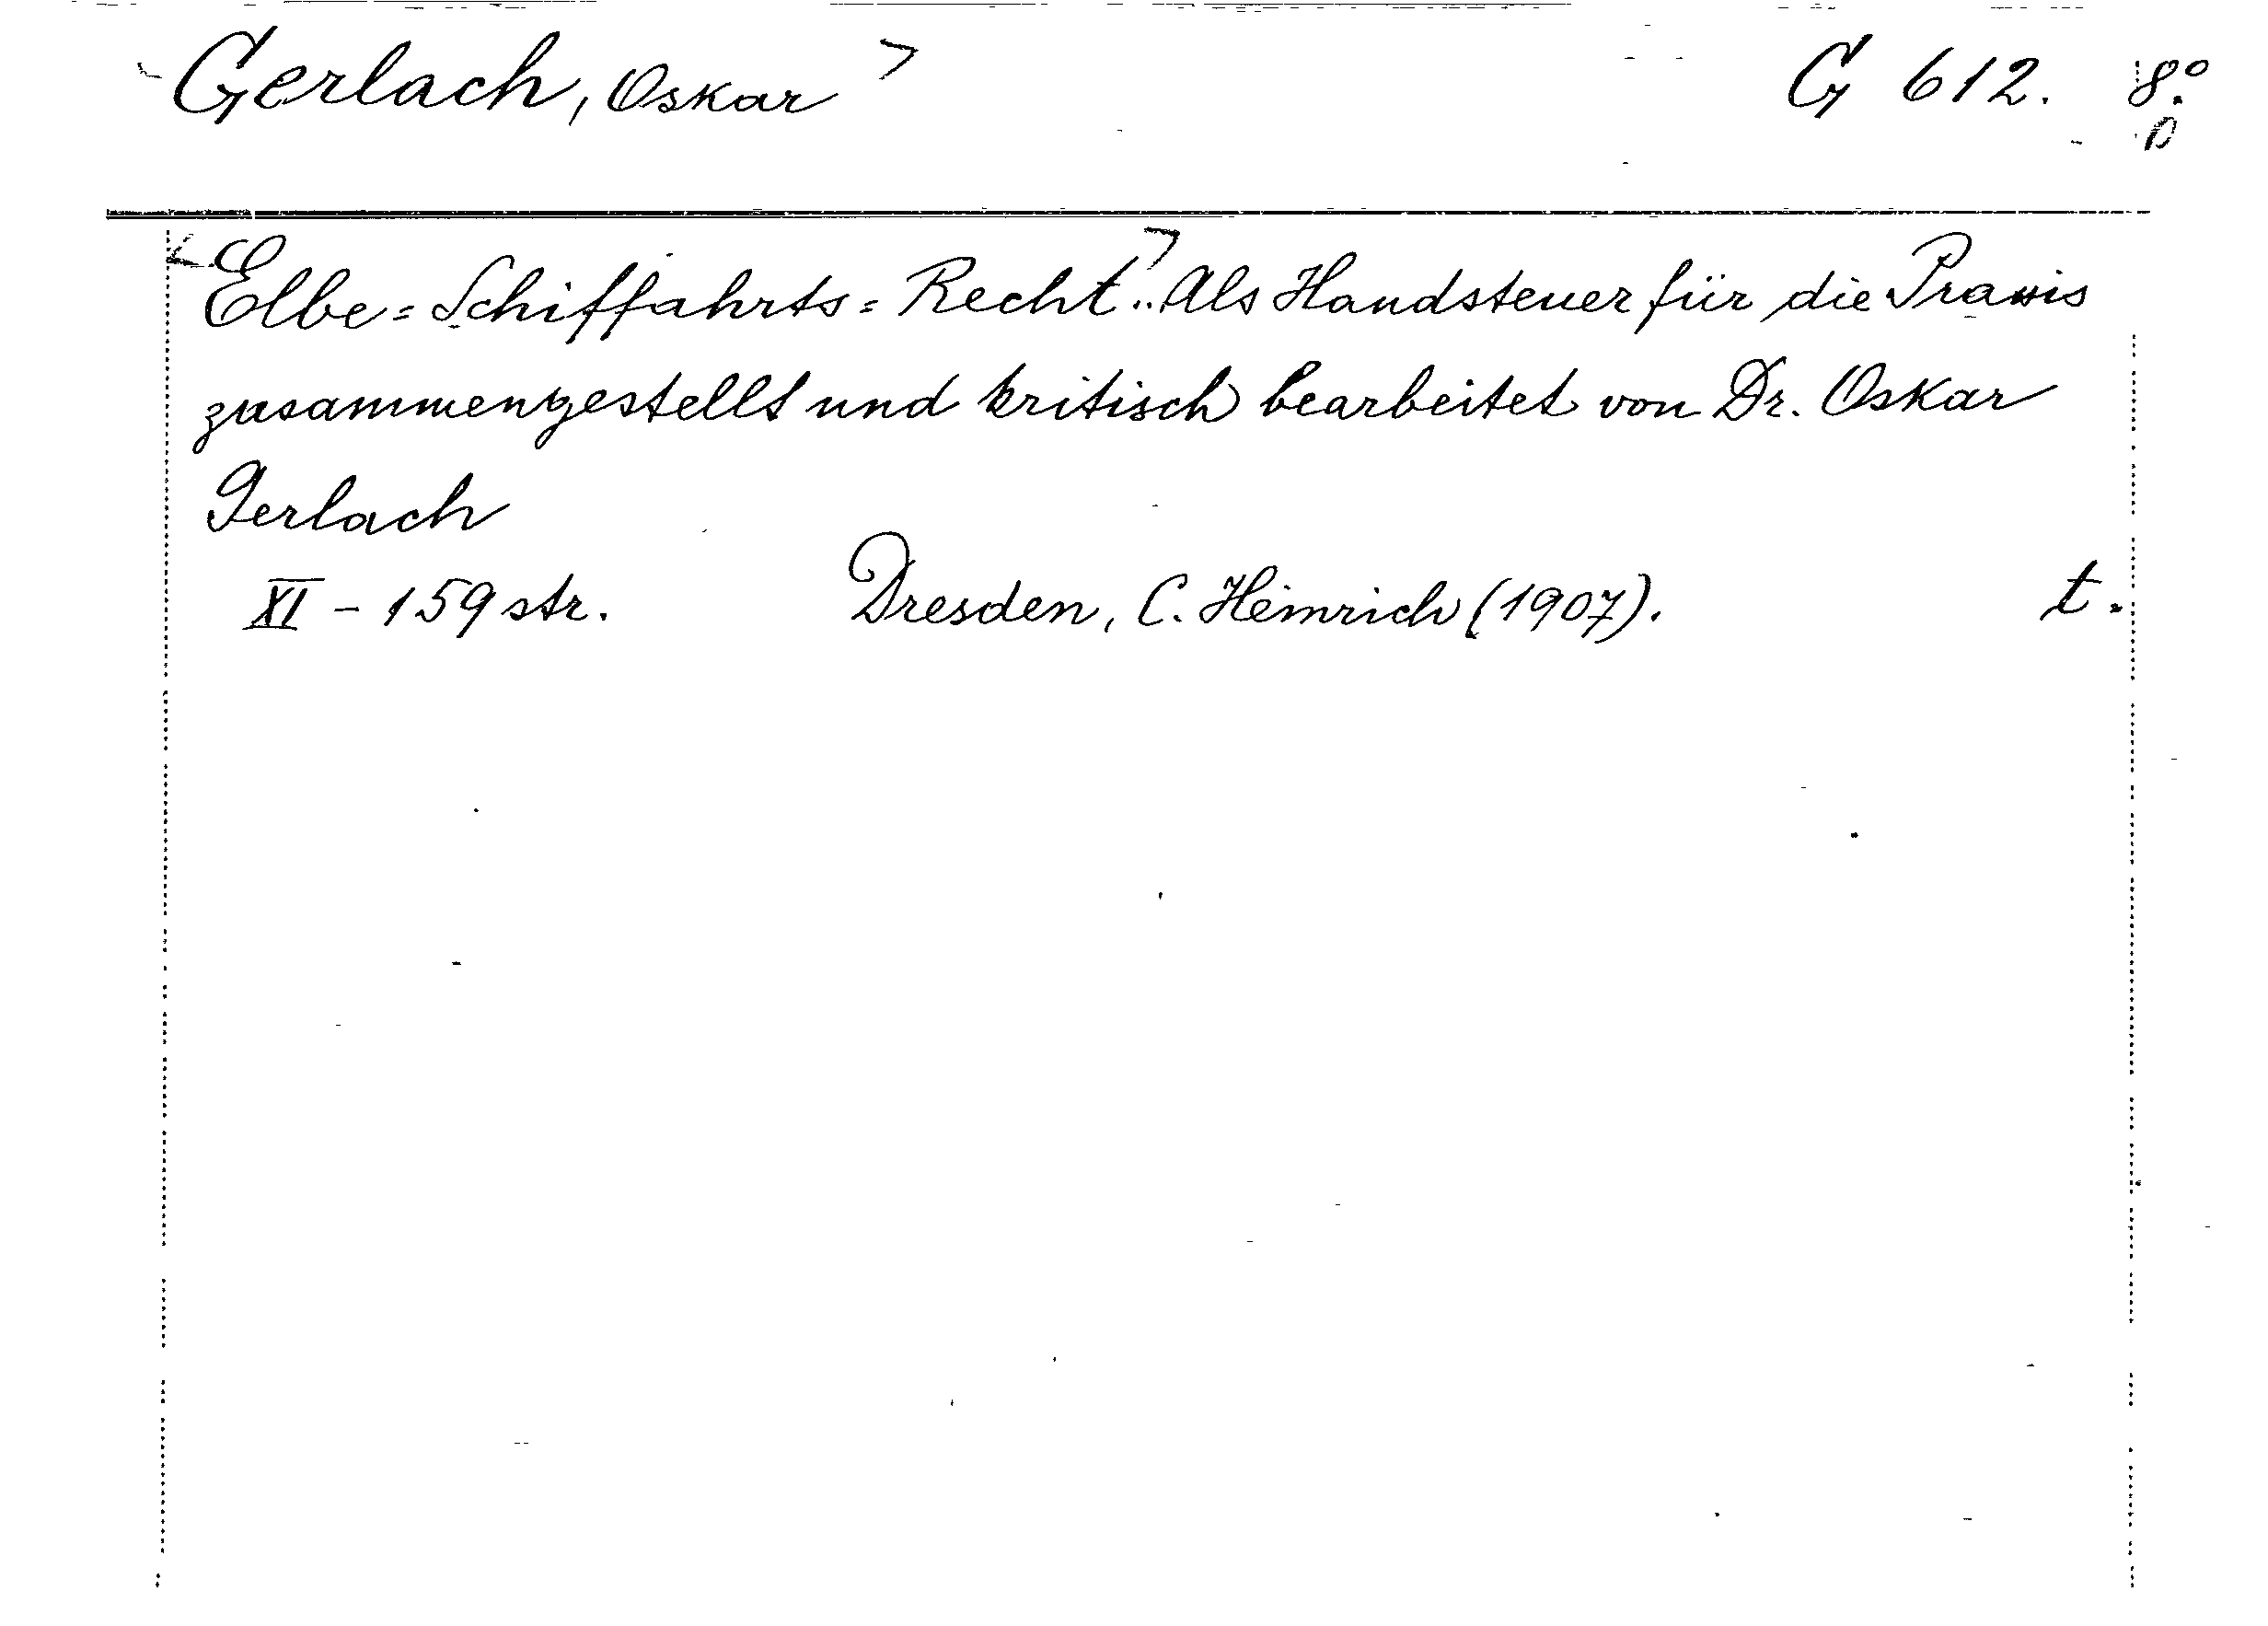 Gerlach, Oskar G 612. 8º.
D
Elbe=Schiffahrts=Recht.. Als Handsteuer für die Praxis
zusammengestellt und kritisch bearbeitet von Dr. Oskar
Gerlach
XI - 159 str. Dresden, C. Heinrich (1907). t.